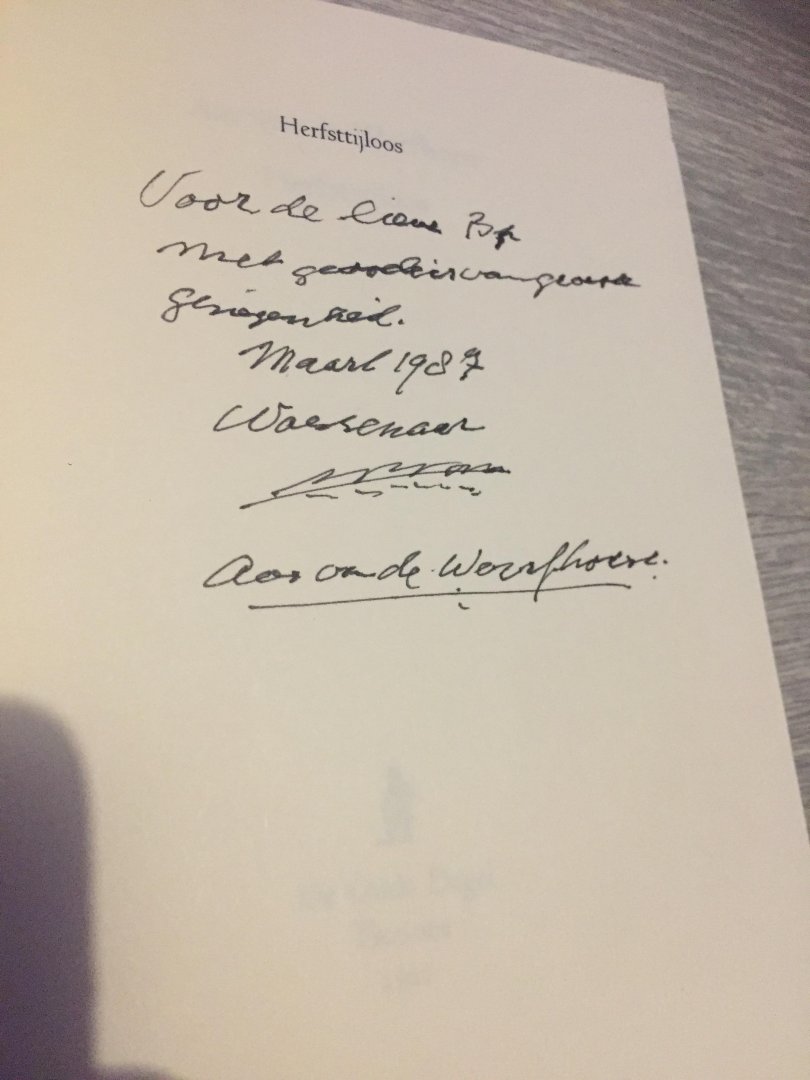 Herfsttijloos
Voor de lieve
met van
genegenheid.
Maart 1987
Wassenaar
Aar van de Werfhorst.